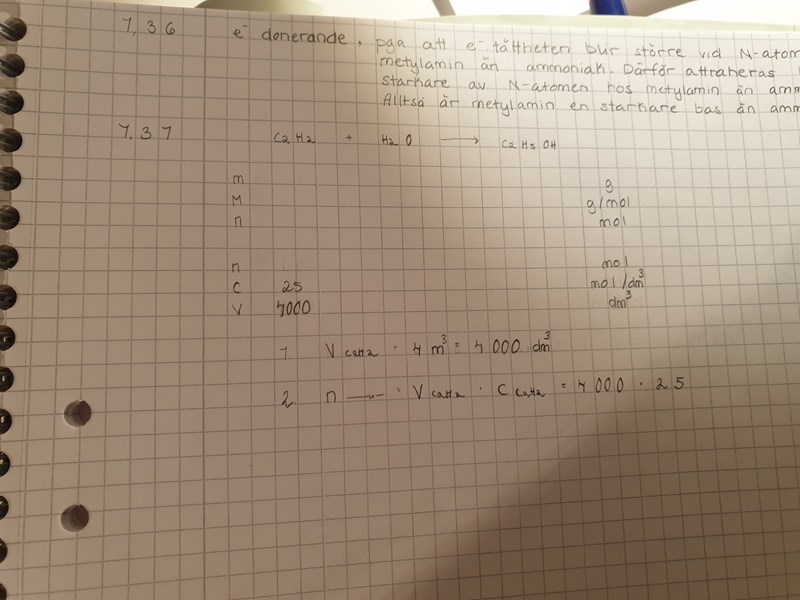 7,36 e⁻ donerande, pga att e⁻ tättheten blir större vid N-atom
metylamin än ammoniak. Därför attraheras
starkare av N-atomen hos metylamin än amm
Alltså är metylamin en starkare bas än amm
7,37 C2H2 + H2O → C2H5OH
m g
M g/mol
n mol
n mol
C 25 mol/dm³
V 7000 dm³
1 V C2H2 = 7 m³ = 7 000 dm³
2 n —〃— = V C2H2 · C C2H2 = 7 000 · 25